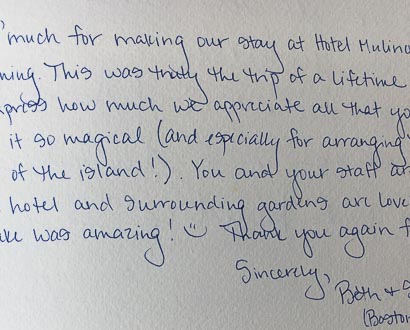 much for making our stay at Hotel Mulino
ning. This was truly the trip of a lifetime
xpress how much we appriciate all that yo
it so magical (and especially for arranging
of the island!). You and your staff ar
hotel and surrounding gardens are love
was amazing! Thank you again f
Sincerely,
Beth +
(Boston